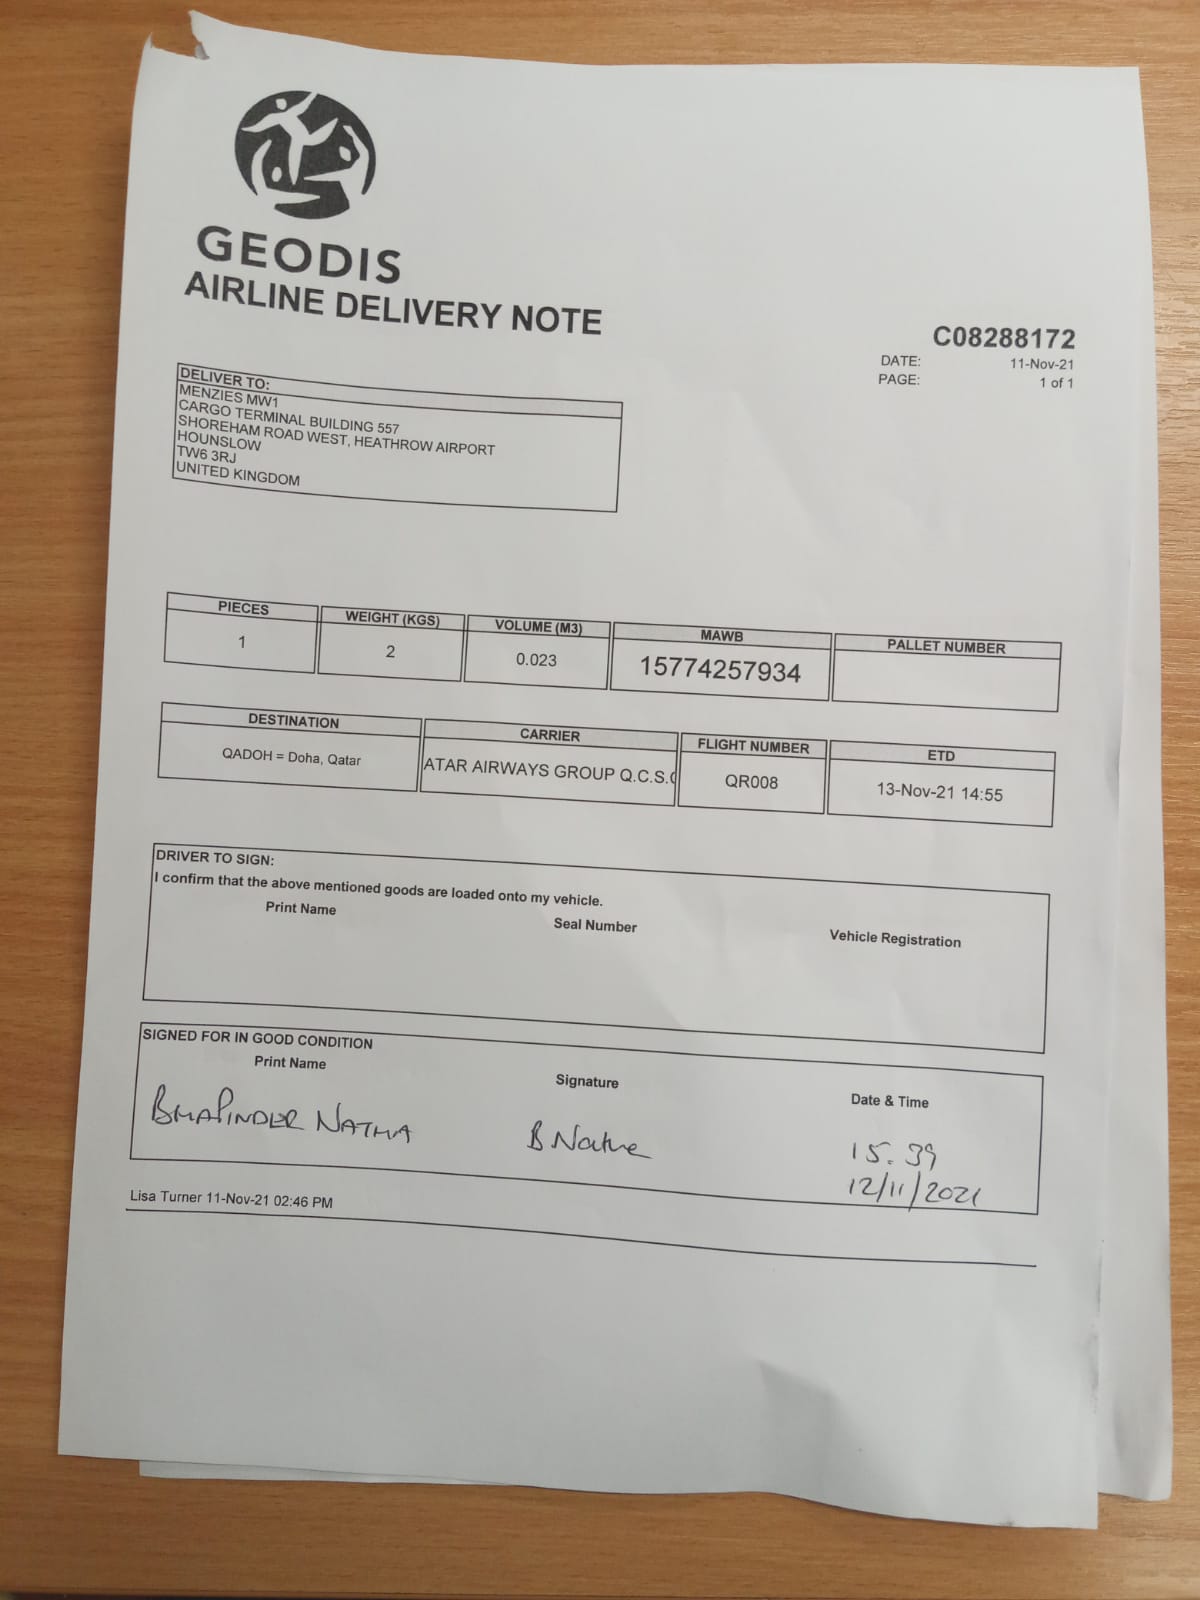 GEODIS
AIRLINE DELIVERY NOTE
C08288172
DATE: 11-Nov-21
PAGE: 1 of 1
DELIVER TO:
MENZIES MW1
CARGO TERMINAL BUILDING 557
SHOREHAM ROAD WEST, HEATHROW AIRPORT
HOUNSLOW
TW6 3RJ
UNITED KINGDOM
PIECES WEIGHT (KGS) VOLUME (M3) MAWB PALLET NUMBER
1 2 0.023 15774257934
DESTINATION CARRIER FLIGHT NUMBER ETD
QADOH = Doha, Qatar ATAR AIRWAYS GROUP Q.C.S.( QR008 13-Nov-21 14:55
DRIVER TO SIGN:
I confirm that the above mentioned goods are loaded onto my vehicle.
Print Name Seal Number Vehicle Registration
SIGNED FOR IN GOOD CONDITION
Print Name Signature Date & Time
BHAPINDER NATHA B Natha 15.39
12/11/2021
Lisa Turner 11-Nov-21 02:46 PM